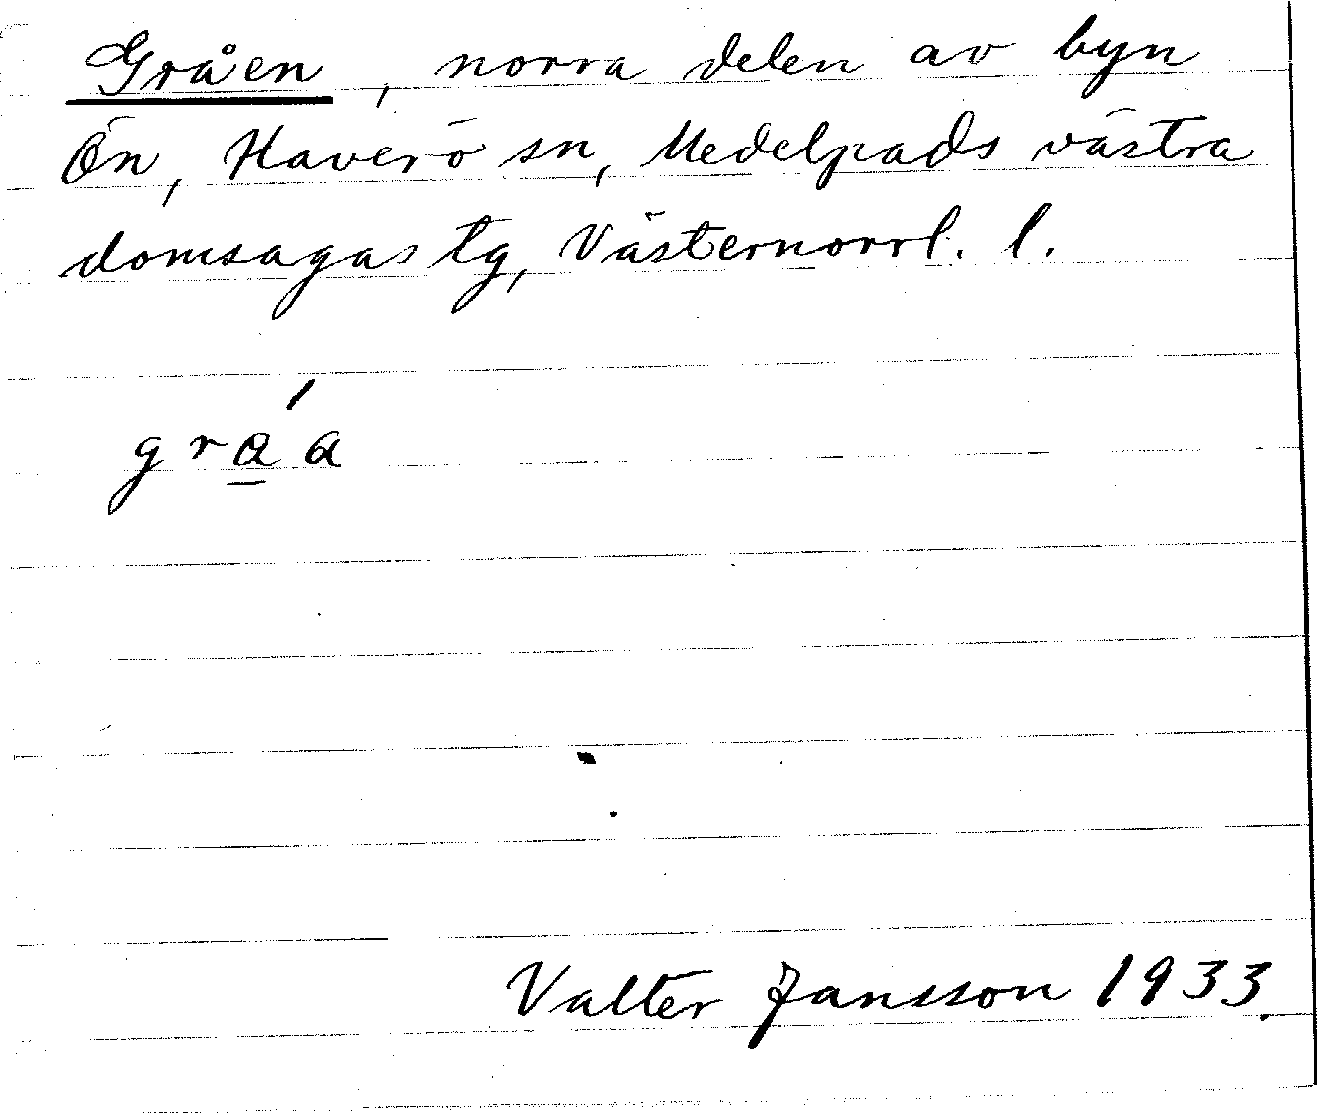 Gråen, norra delen av byn
Ön, Haverö sn, Medelpads västra
domsagas tg, Västernorrl. l.
Valter Jansson 1933.